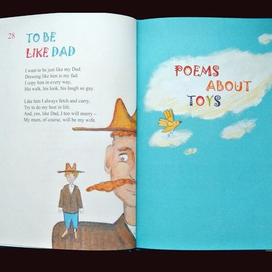 28
TO BE
LIKE DAD
I want to be just like my Dad.
Dressing like him is my fad.
I copy him in every way,
His walk, his look, his laugh so gay.
Like him I always fetch and carry,
Try to do my best in life.
And, yes, like Dad, I too will marry –
My mum, of course, will be my wife.
POEMS
ABOUT
TOYS